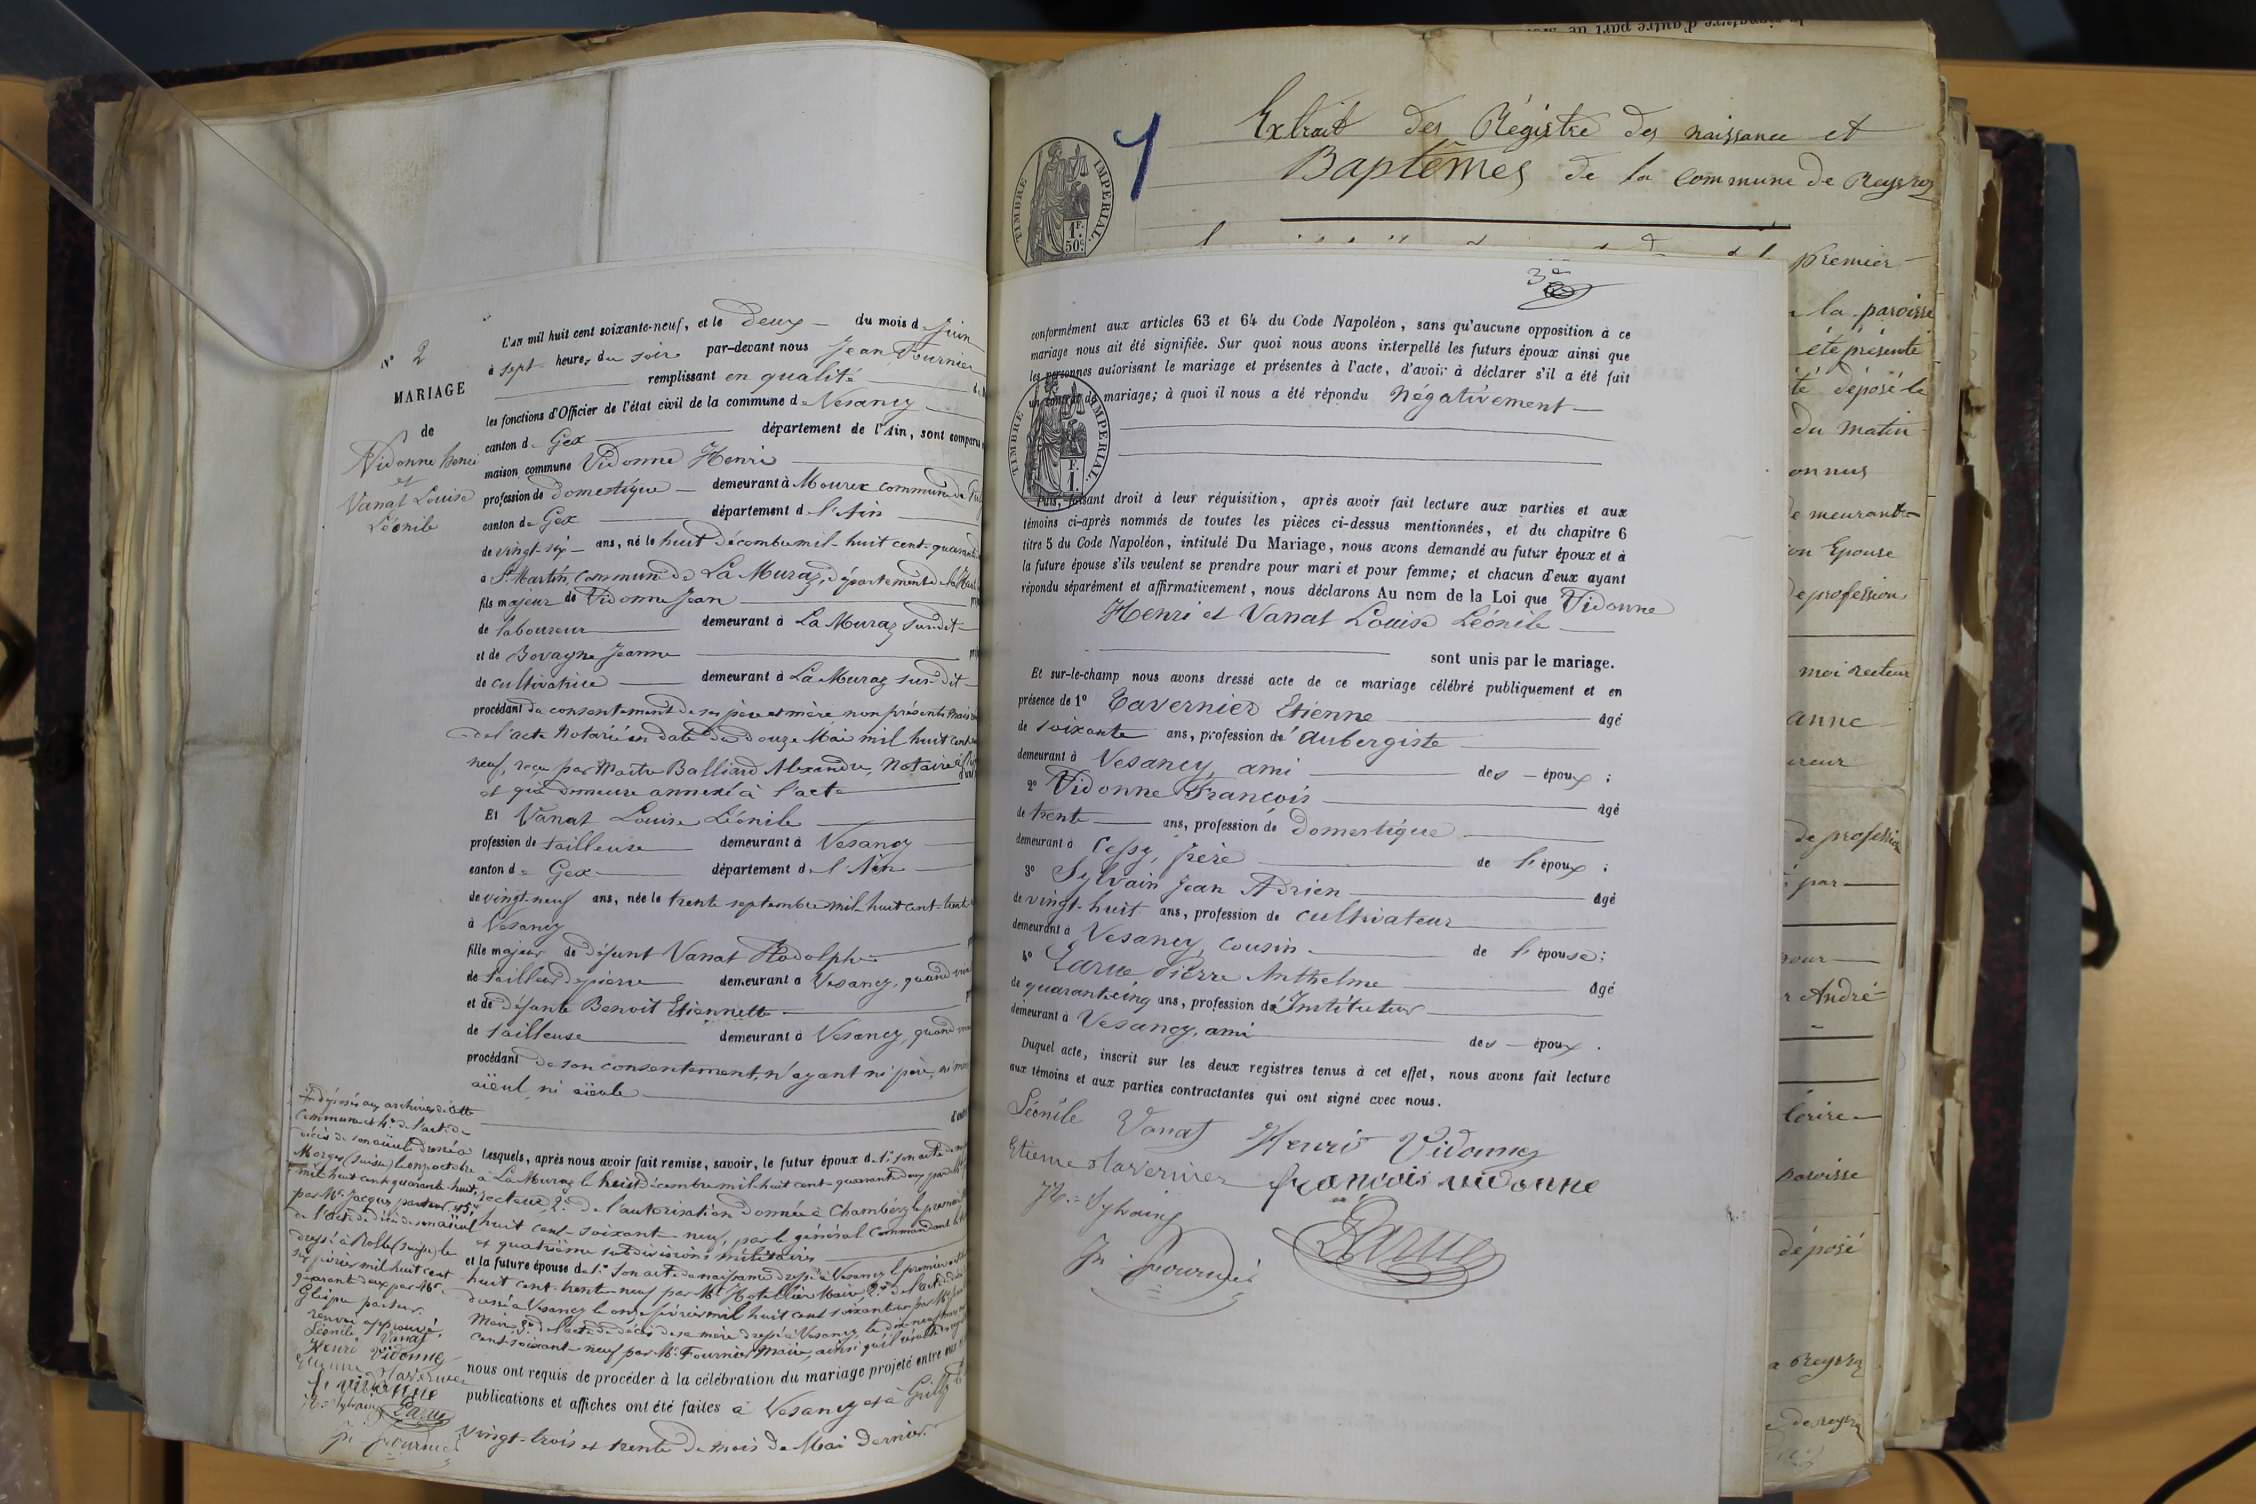 N° 2
MARIAGE
de
Vidonne henri
et
Vanat Louise
Léonile
L'an mil huit cent soixante-neuf, et le deux du mois de Juin
à sept heures du soir par-devant nous Jean Fournier
remplissant en qualité
les fonctions d'Officier de l'état civil de la commune de Vesancy
canton de Gex département de l'Ain, sont comparu
maison commune Vidonne Henri
profession de domestique demeurant à Mourex commune de
canton de Gex département de l'Ain
de vingt-six ans, né le huit décembre mil-huit cent-quarante
à St Martin, commune de La Muraz, département de la
fils majeur de Vidonne Jean
de laboureur demeurant à La Muraz susdit
et de Bovagne Jeanne
de cultivatrice demeurant à La Muraz sus-dit
procédant du consentement de ses père et mère non présents mais
de l'acte notarié en date du douze Mai mil huit cent
neuf, reçu par Maître Balliard Alexandre, Notaire à
et qui demeure annexé à l'acte
Et Vanat Louise Léonile
profession de tailleuse demeurant à Vesancy
canton de Gex département de l'Ain
de vingt-neuf ans, née le trente septembre mil-huit cent-trente
à Vesancy
fille majeur de défunt Vanat Rodolphe
de tailleur de pierre demeurant à Vesancy, quand
et de défunte Benoit Etiennette
de tailleuse demeurant à Vesancy, quand
procédant de son consentement, n'ayant ni père, ni
aïeul, ni aïeule
déposés aux archives de cette
commune et 4° de l'acte de
décès de son aïeule dressé à
Morges (Suisse) le onze octobre
mil huit cent quarante-huit,
par Mr Jacques pasteur, 5°
de l'acte de décès de son aïeul
dressé à Rolle (Suisse) le
six février mil huit cent
quarante deux par Mr
pasteur.
renvoi approuvé.
Léonile Vanat
Henri Vidonne
Etienne Tavernier
f. vidonne
Sylvain Larue
Jn Fournier
Lesquels, après nous avoir fait remise, savoir, le futur époux de 1° son acte de
à La Muraz le huit décembre mil-huit cent-quarante deux par Mr
recteur, 2° de l'autorisation donnée à Chambéry le premier
huit cent-soixante-neuf, par le général Commandant la
et quatrième subdivisions militaires
et la future épouse de 1° son acte de naissance dressé à Vesancy le premier
huit cent-trente-neuf par Mr Hotellier Maire, 2° de l'acte de
dressé à Vesancy le onze février mil huit cent soixante par Mr
Maire, 3° de l'acte de décès de sa mère dressé à Vesancy le dix-neuf
cent-soixante-neuf par Mr Fournier Maire, ainsi qu'il résulte
nous ont requis de procéder à la célébration du mariage projeté entre eux
publications et affiches ont été faites à Vesancy et à Grilly
vingt-trois et trente du mois de Mai dernier.
Extrait des Régistre des naissance et
Baptêmes de la commune de Reyvroz
TIMBRE IMPERIAL
1 F. 50 c.
3e
conformément aux articles 63 et 64 du Code Napoléon, sans qu'aucune opposition à ce
mariage nous ait été signifiée. Sur quoi nous avons interpellé les futurs époux ainsi que
les personnes autorisant le mariage et présentes à l'acte, d'avoir à déclarer s'il a été fait
un contrat de mariage; à quoi il nous a été répondu Négativement
TIMBRE IMPERIAL
1 F.
Puis, faisant droit à leur réquisition, après avoir fait lecture aux parties et aux
témoins ci-après nommés de toutes les pièces ci-dessus mentionnées, et du chapitre 6
titre 5 du Code Napoléon, intitulé Du Mariage, nous avons demandé au futur époux et à
la future épouse s'ils veulent se prendre pour mari et pour femme; et chacun d'eux ayant
répondu séparément et affirmativement, nous déclarons Au nom de la Loi que Vidonne
Henri et Vanat Louise Léonile
sont unis par le mariage.
Et sur-le-champ nous avons dressé acte de ce mariage célébré publiquement et en
présence de 1° Tavernier Etienne âgé
de soixante ans, profession d'Aubergiste
demeurant à Vesancy, ami des époux ;
2° Vidonne François âgé
de trente ans, profession de domestique
demeurant à Cessy, frère de l'époux ;
3° Sylvain Jean Adrien âgé
de vingt-huit ans, profession de cultivateur
demeurant à Vesancy, cousin de l'épouse ;
4° Larue Pierre Anthelme âgé
de quarante cinq ans, profession d'Instituteur
demeurant à Vesancy, ami des époux .
Duquel acte, inscrit sur les deux registres tenus à cet effet, nous avons fait lecture
aux témoins et aux parties contractantes qui ont signé avec nous.
Léonile Vanat Henri Vidonne
Etienne tavernier françois vidonne
Sylvain
Larue
Jn Fournier
premier
la paroisse
été présenté
déposé le
du matin
demeurant
Epouse
de profession
moi recteur
de profession
par
André
paroisse
déposé
a Reyvroz
de reyvroz